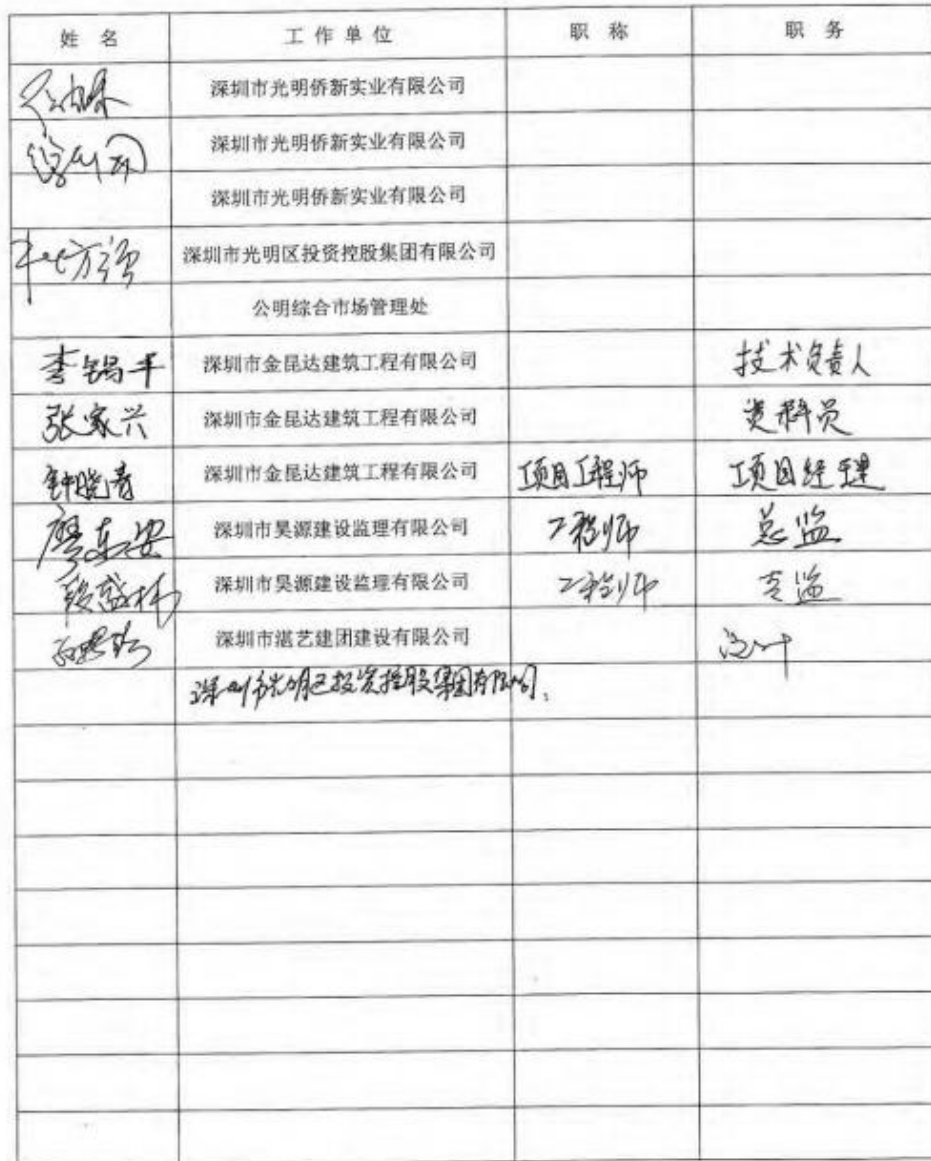 姓 名 工 作 单 位 职 称 职 务
深圳市光明侨新实业有限公司
深圳市光明侨新实业有限公司
深圳市光明侨新实业有限公司
深圳市光明区投资控股集团有限公司
公明综合市场管理处
李锡平 深圳市金昆达建筑工程有限公司 技术负责人
张家兴 深圳市金昆达建筑工程有限公司 资料员
钟晓青 深圳市金昆达建筑工程有限公司 项目工程师 项目经理
廖东安 深圳市昊源建设监理有限公司 工程师 总监
段盛伟 深圳市昊源建设监理有限公司 工程师 专监
深圳市湛艺建团建设有限公司 设计
深圳市光明区投资控股集团有限公司